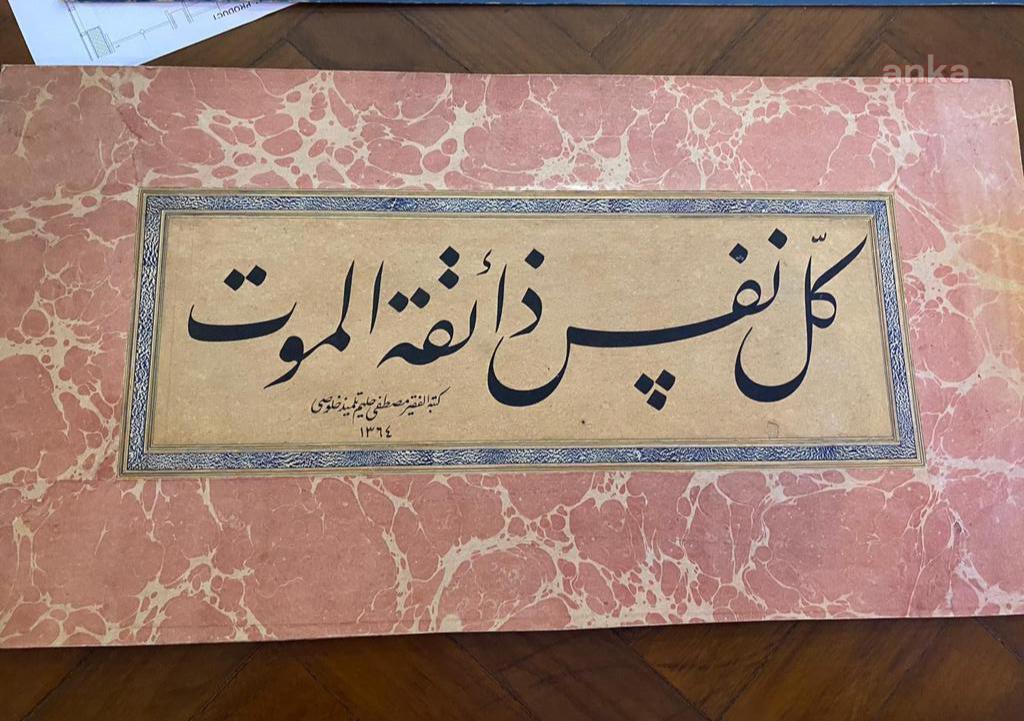 PRODUCT
anka
كلّ نفس ذائقة الموت
كتبه الفقير مصطفى حليم تلميذ خلوصى
١٣٦٤